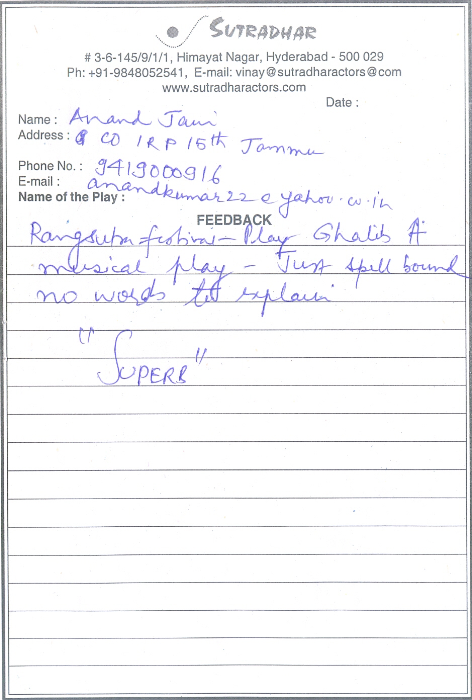 SUTRADHAR
# 3-6-145/9/1/1, Himayat Nagar, Hyderabad - 500 029
Ph: +91-9848052541, E-mail: vinay@sutradharactors@com
www.sutradharactors.com
Date :
Name : Anand Jain
Address : CO IRP 15th Jammu
Phone No. : 9419000916
E-mail : anandkumar22@yahoo.co.in
Name of the Play :
FEEDBACK
Play Ghalib A
musical play - Just spell bound
no words to explain
"SUPERB"